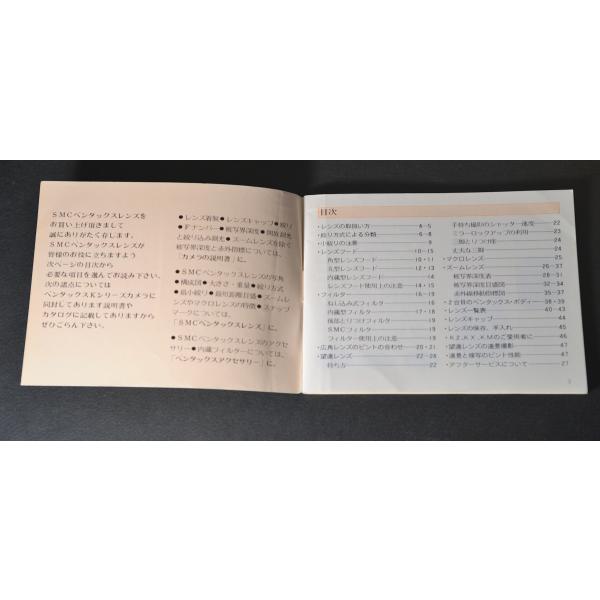 SMCペンタックスレンズを
お買い上げ頂きまして
誠にありがたく存じます。
SMCペンタックスレンズが
皆様のお役に立ちますよう
次ページの目次から
必要な項目を選んでお読み下さい。
次の諸点については
ペンタックスKシリーズカメラに
同封してあります説明書や
カタログに記載してありますから
ぜひごらん下さい。
●レンズ着脱●レンズキャップ●絞り
●Fナンバー●被写界深度●開放測光
と絞り込み測光●ズームレンズを除く
被写界深度と赤外指標については、
「カメラの説明書」に。
●SMCペンタックスレンズの写角
●構成図●大きさ・重量●絞り方式
●最小絞り●最短距離目盛●ズームレ
ンズやマクロレンズの特徴●スナップ
マークについては、
「SMCペンタックスレンズ」に。
●SMCペンタックスレンズのアクセ
サリー●内蔵フィルターについては、
「ペンタックスアクセサリー」に。
目次
・レンズの取扱い方 4・5
・絞り方式による分類 6〜8
・小絞りの注意 9
・レンズフード 10〜15
角型レンズフード 10・11
丸型レンズフード 12・13
内蔵型レンズフード 14
レンズフード使用上の注意 14・15
・フィルター 16〜19
ねじ込み式フィルター 16
内蔵型フィルター 17・18
後部とりつけフィルター 19
SMCフィルター 19
フィルター使用上の注意 19
・広角レンズのピントの合わせ 20・21
・望遠レンズ 22〜24
持ち方 22
手持ち撮影のシャッター速度 22
ミラーロックアップの利用 23
三脚とりつけ座 24
丈夫な三脚 24
・マクロレンズ 25
・ズームレンズ 26〜37
被写界深度表 28〜31
被写界深度目盛図 32〜34
赤外線移動指標図 35〜37
・2台目のペンタックス・ボディー 38・39
・レンズ一覧表 40〜43
・レンズキャップ 44
・レンズの保存、手入れ 45
・K2,KX,KMのご愛用者に 46
・望遠レンズの遠景撮影 47
・遠景と複写のピント性能 47
・アフターサービスについて 27
3